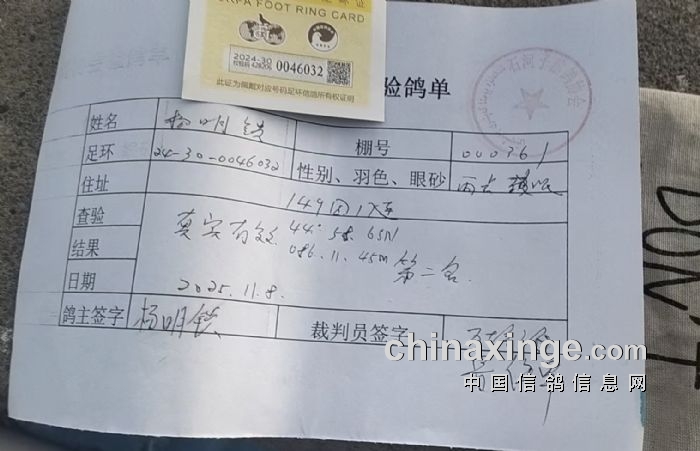 CRPA FOOT RING CARD
2024-30
0046032
此证为佩戴对应号码足环信鸽所有权证明
验鸽单
姓名 杨明铁 棚号 000361
足环 24-30-0046032 性别、羽色、眼砂
住址 149团
查验 真实有效 44°.58.65N
结果 086.11.45m 第二名
日期 2025.11.8.
鸽主签字 杨明铁 裁判员签字
chinaxinge.com
中国信鸽信息网